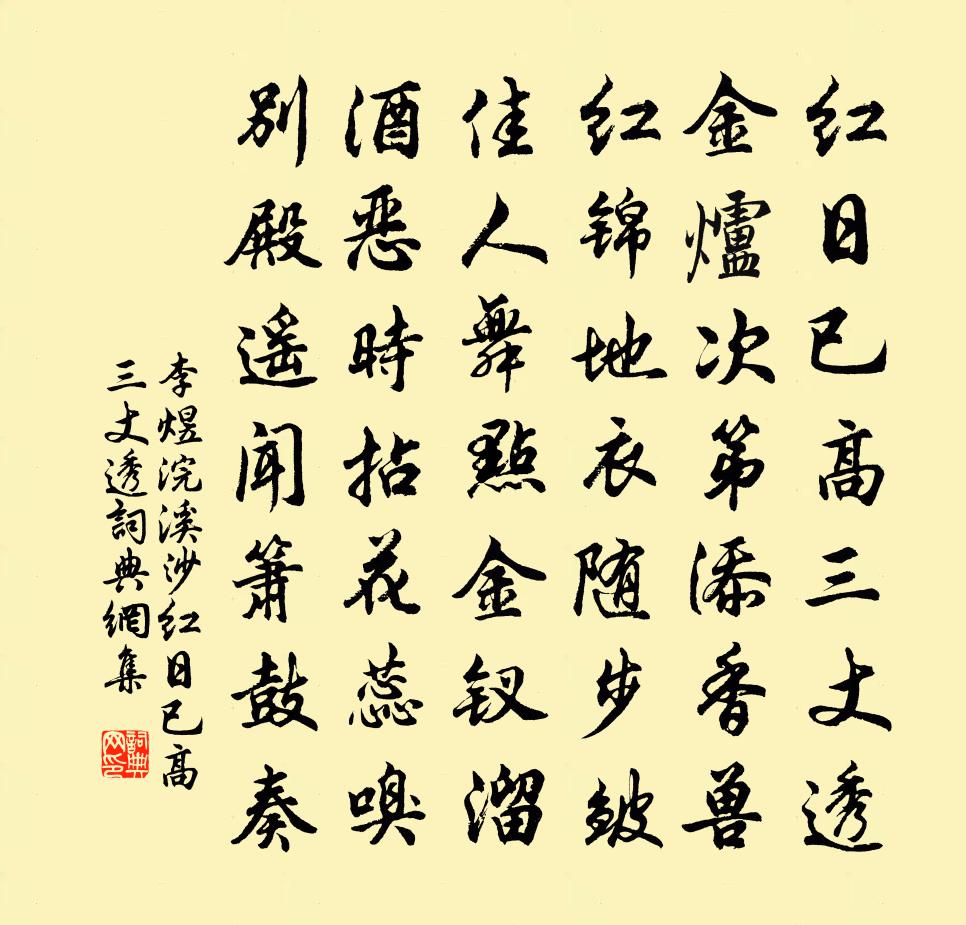 红日已高三丈透
金爐次第添香兽
红锦地衣随步皱
佳人舞點金钗溜
酒恶時拈花蕊嗅
别殿遥闻箫鼓奏
李煜浣溪沙红日已高
三丈透詞典網集
詞典
网印